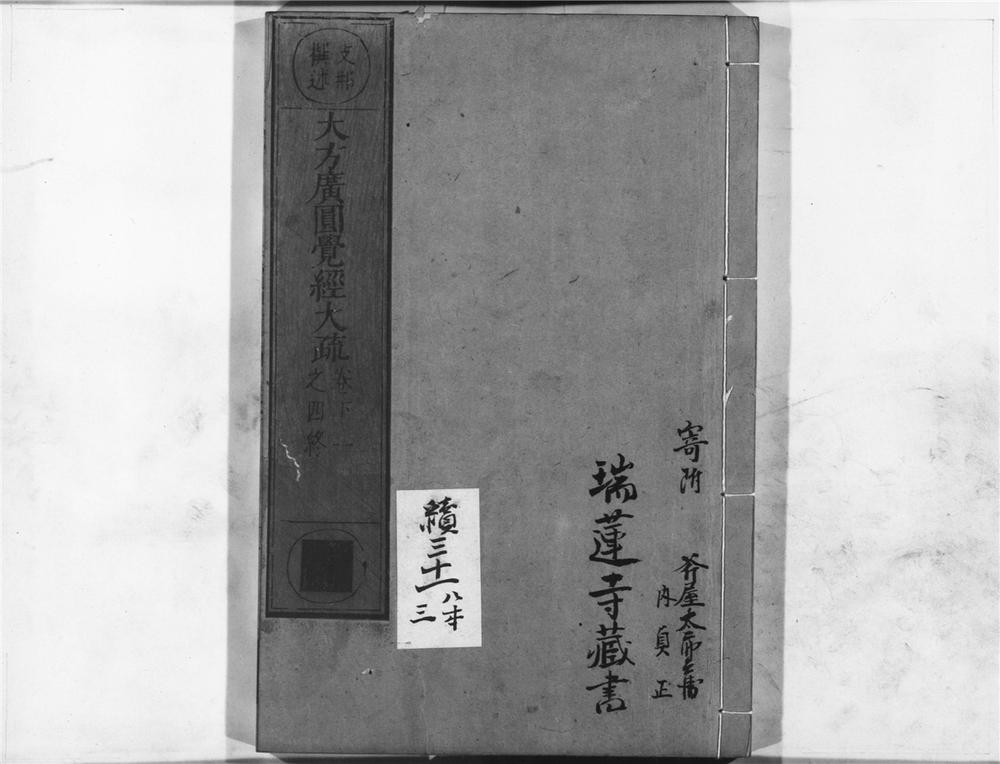 寄附
斧屋太郎左衛
内 貞正
瑞蓮寺藏書
續三十一
八本
三
支那
撰述
大方廣圓覺經大疏
卷下一
之四終